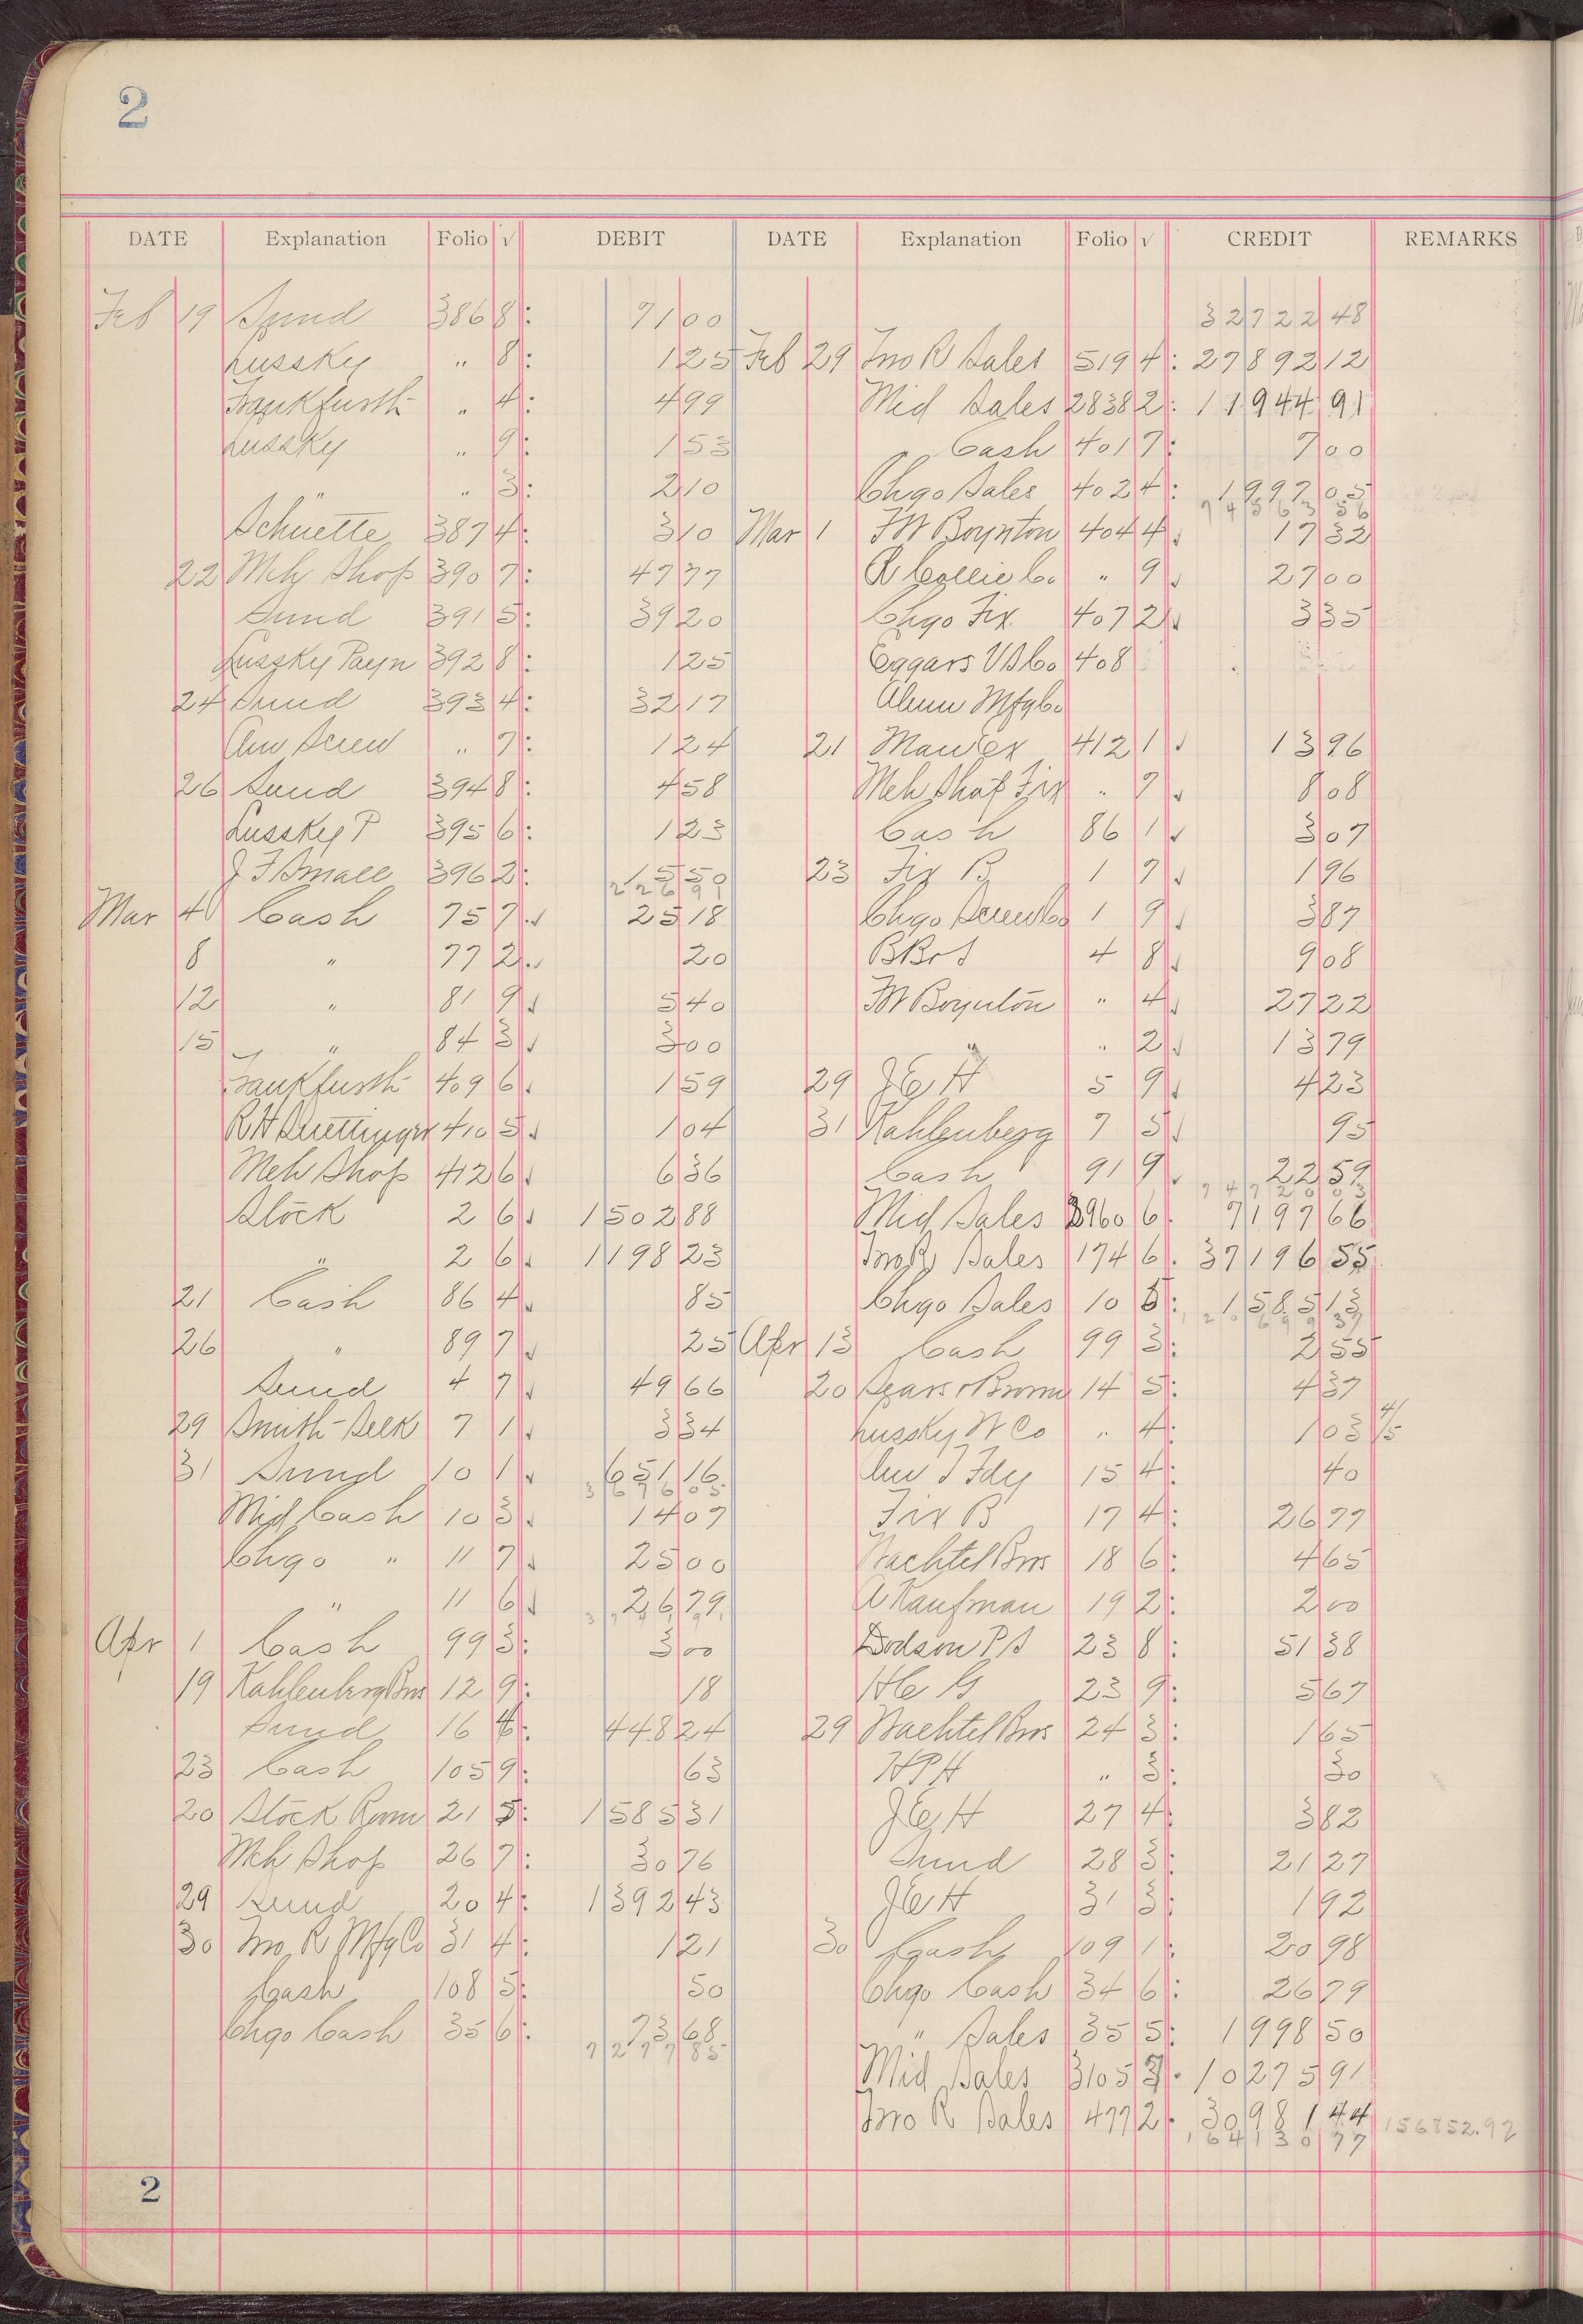 2
DATE Explanation Folio √ DEBIT DATE Explanation Folio √ CREDIT REMARKS
Feb 19 Sund 386 8: 71 00 32722 48
Lussky " 8: 1 25 Feb 29 Jno R Sales 519 4: 27892 12
Frankfurth " 4: 4 99 Mid Sales 2838 2: 11944 91
Lussky " 9: 1 53 Cash 401 7: 7 00
" " 3: 2 10 Chgo Sales 402 4: 1997 05
74563 56
Schuette 387 4: 3 10 Mar 1 FW Boynton 404 4√ 17 32
22 Mch Shop 390 7: 47 77 R Collie Co " 9√ 27 00
Sund 391 5: 39 20 Chgo Fix 407 2√ 3 35
Lussky Payn 392 8: 1 25 Eggars VS Co 408
24 Sund 393 4: 32 17 Alum Mfg Co
Am Screw " 7: 1 24 21 Man Ex 412 1√ 13 96
26 Sund 394 8: 4 58 Mch Shop Fix " 7√ 8 08
Lussky P 395 6: 1 23 Cash 86 1√ 3 07
J F Small 396 2: 15 50 23 Fix B 1 7√ 1 96
226 91
Mar 4 Cash 75 7√ 25 18 Chgo Screw Co 1 9√ 3 87
8 " 77 2√ 20 BBros 4 8√ 9 08
12 " 81 9√ 5 40 FW Boynton " 4√ 27 22
15 " 84 3√ 3 00 " " 2√ 13 79
Frankfurth 409 6√ 1 59 29 JEH 5 9√ 4 23
RH 410 5√ 1 04 31 Kahlenberg 7 5√ 95
Mch Shop 412 6√ 6 36 Cash 91 9√ 22 59
74720 03
Stock 2 6√ 1502 88 Mid Sales 3960 6 7197 66
" 2 6√ 1198 23 Jno R Sales 174 6 37196 55
21 Cash 86 4√ 85 Chgo Sales 10 5: 1585 13
120699 37
26 " 89 7√ 25 Apr 13 Cash 99 3: 2 55
Sund 4 7√ 49 66 20 Sears & Brown 14 5: 4 37
29 Smith-Selk 7 1√ 3 34 Lussky W Co " 4: 1 03 4/5
31 Sund 10 1√ 651 16 Am I Fdy 15 4: 40
3676 05
Mid Cash 10 3√ 14 07 Fix B 17 4: 26 77
Chgo " 11 7√ 25 00 Wachtel Bros 18 6: 4 65
" 11 6√ 26 79 A Kaufman 19 2: 2 00
3741 91
Apr 1 Cash 99 3: 3 00 Dodson P S 23 8: 51 38
19 Kahlenberg Bros 12 9: 18 HC G 23 9: 5 67
Sund 16 4: 448 24 29 Wachtel Bros 24 3: 1 65
23 Cash 105 9: 63 HPH " 3: 30
20 Stock Room 21 5: 1585 31 JEH 27 4: 3 82
Mch Shop 26 7: 30 76 Sund 28 3: 21 27
29 Sund 20 4: 1392 43 JEH 31 3: 1 92
30 Jno R Mfg Co 31 4: 1 21 30 Cash 109 1: 20 98
Cash 108 5: 50 Chgo Cash 34 6: 26 79
Chgo Cash 35 6: 73 68 " Sales 35 5: 1998 50
7277 85
Mid Sales 3105 3: 10275 91
Jno R Sales 477 2: 30981 44
164130 77 156852.92
2